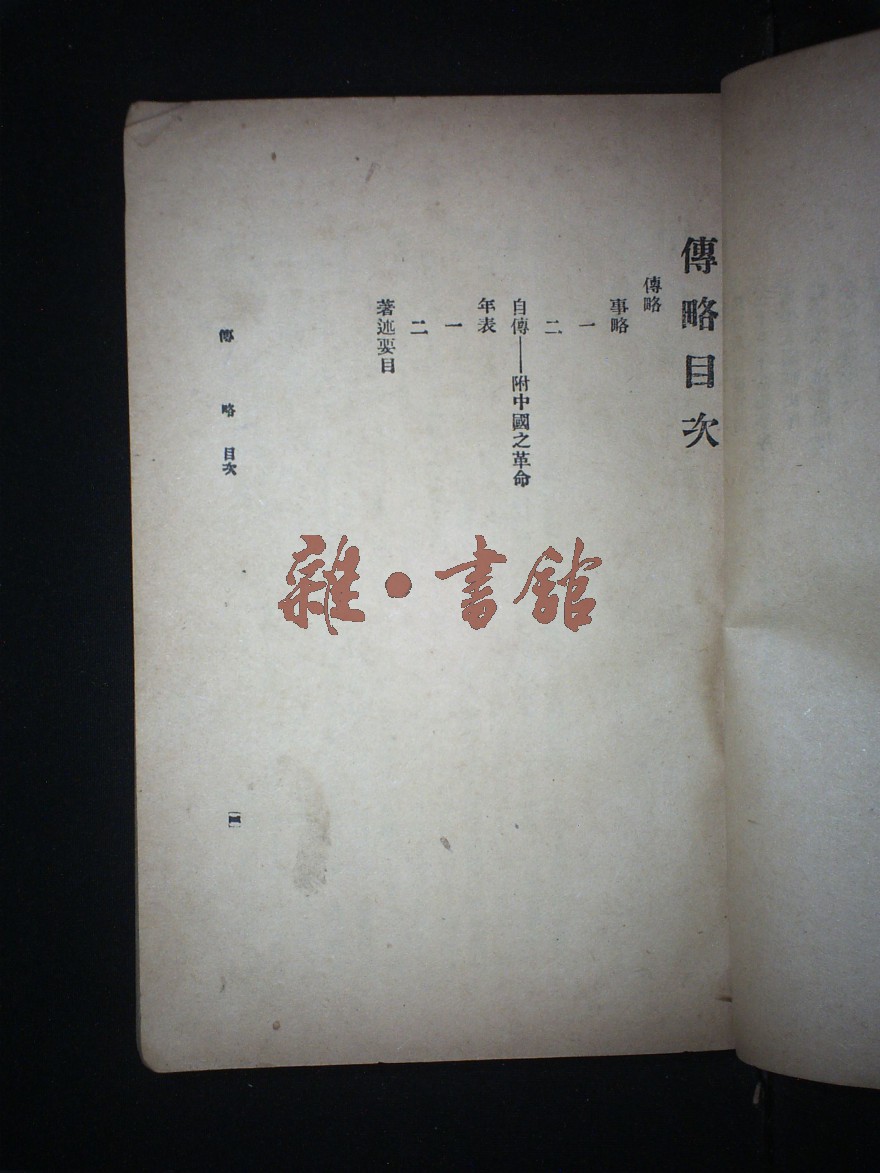 傳略目次
傳略
事略
一
二
自傳——附中國之革命
年表
一
二
著述要目
傳略目次
雜·書館